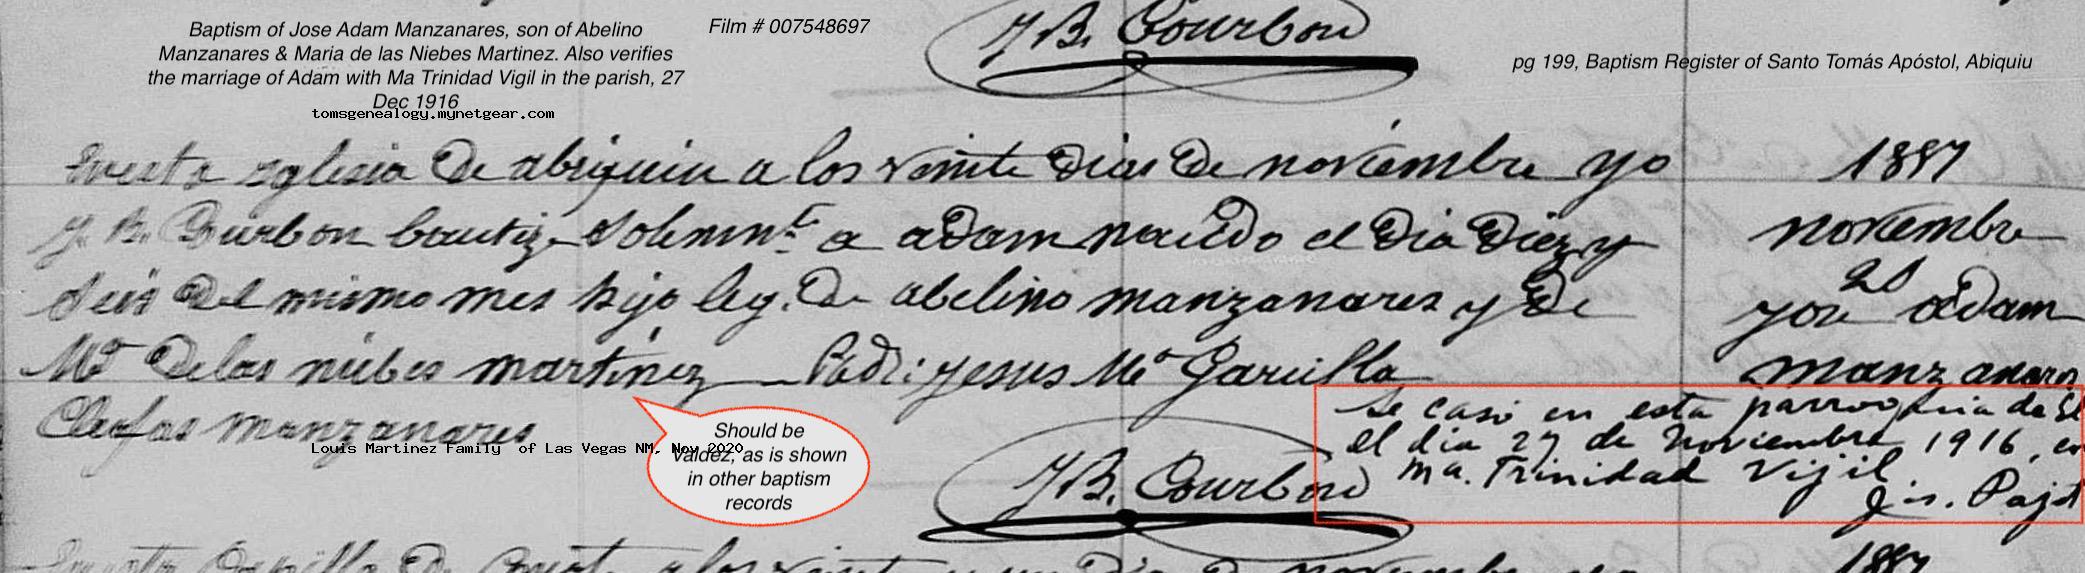 Baptism of Jose Adam Manzanares, son of Abelino
Manzanares & Maria de las Niebes Martinez. Also verifies
the marriage of Adam with Ma Trinidad Vigil in the parish, 27
Dec 1916
tomsgenealogy.mynetgear.com
Film # 007548697
J B. Courbon
pg 199, Baptism Register of Santo Tomás Apóstol, Abiquiu
En esta Yglesia de abiquiu a los veinte dias de noviembre yo
J. B. Courbon bautize Solemnte a adam nacido el dia diez y
seis del mismo mes hijo leg. de abelino manzanares y de
Ma de las niebes martinez Padr: Jesus Ma
Cleofas manzanares
1897
noviembre
20
Jose adam
manzanares
Should be
Valdez, as is shown
in other baptism
records
Louis Martinez Family of Las Vegas NM, Nov 2020
J B. Courbon
Se casó en esta parroquia de
el dia 27 de Noviembre 1916,
Ma. Trinidad Vijil
a los veinte y un dia de noviembre
1897